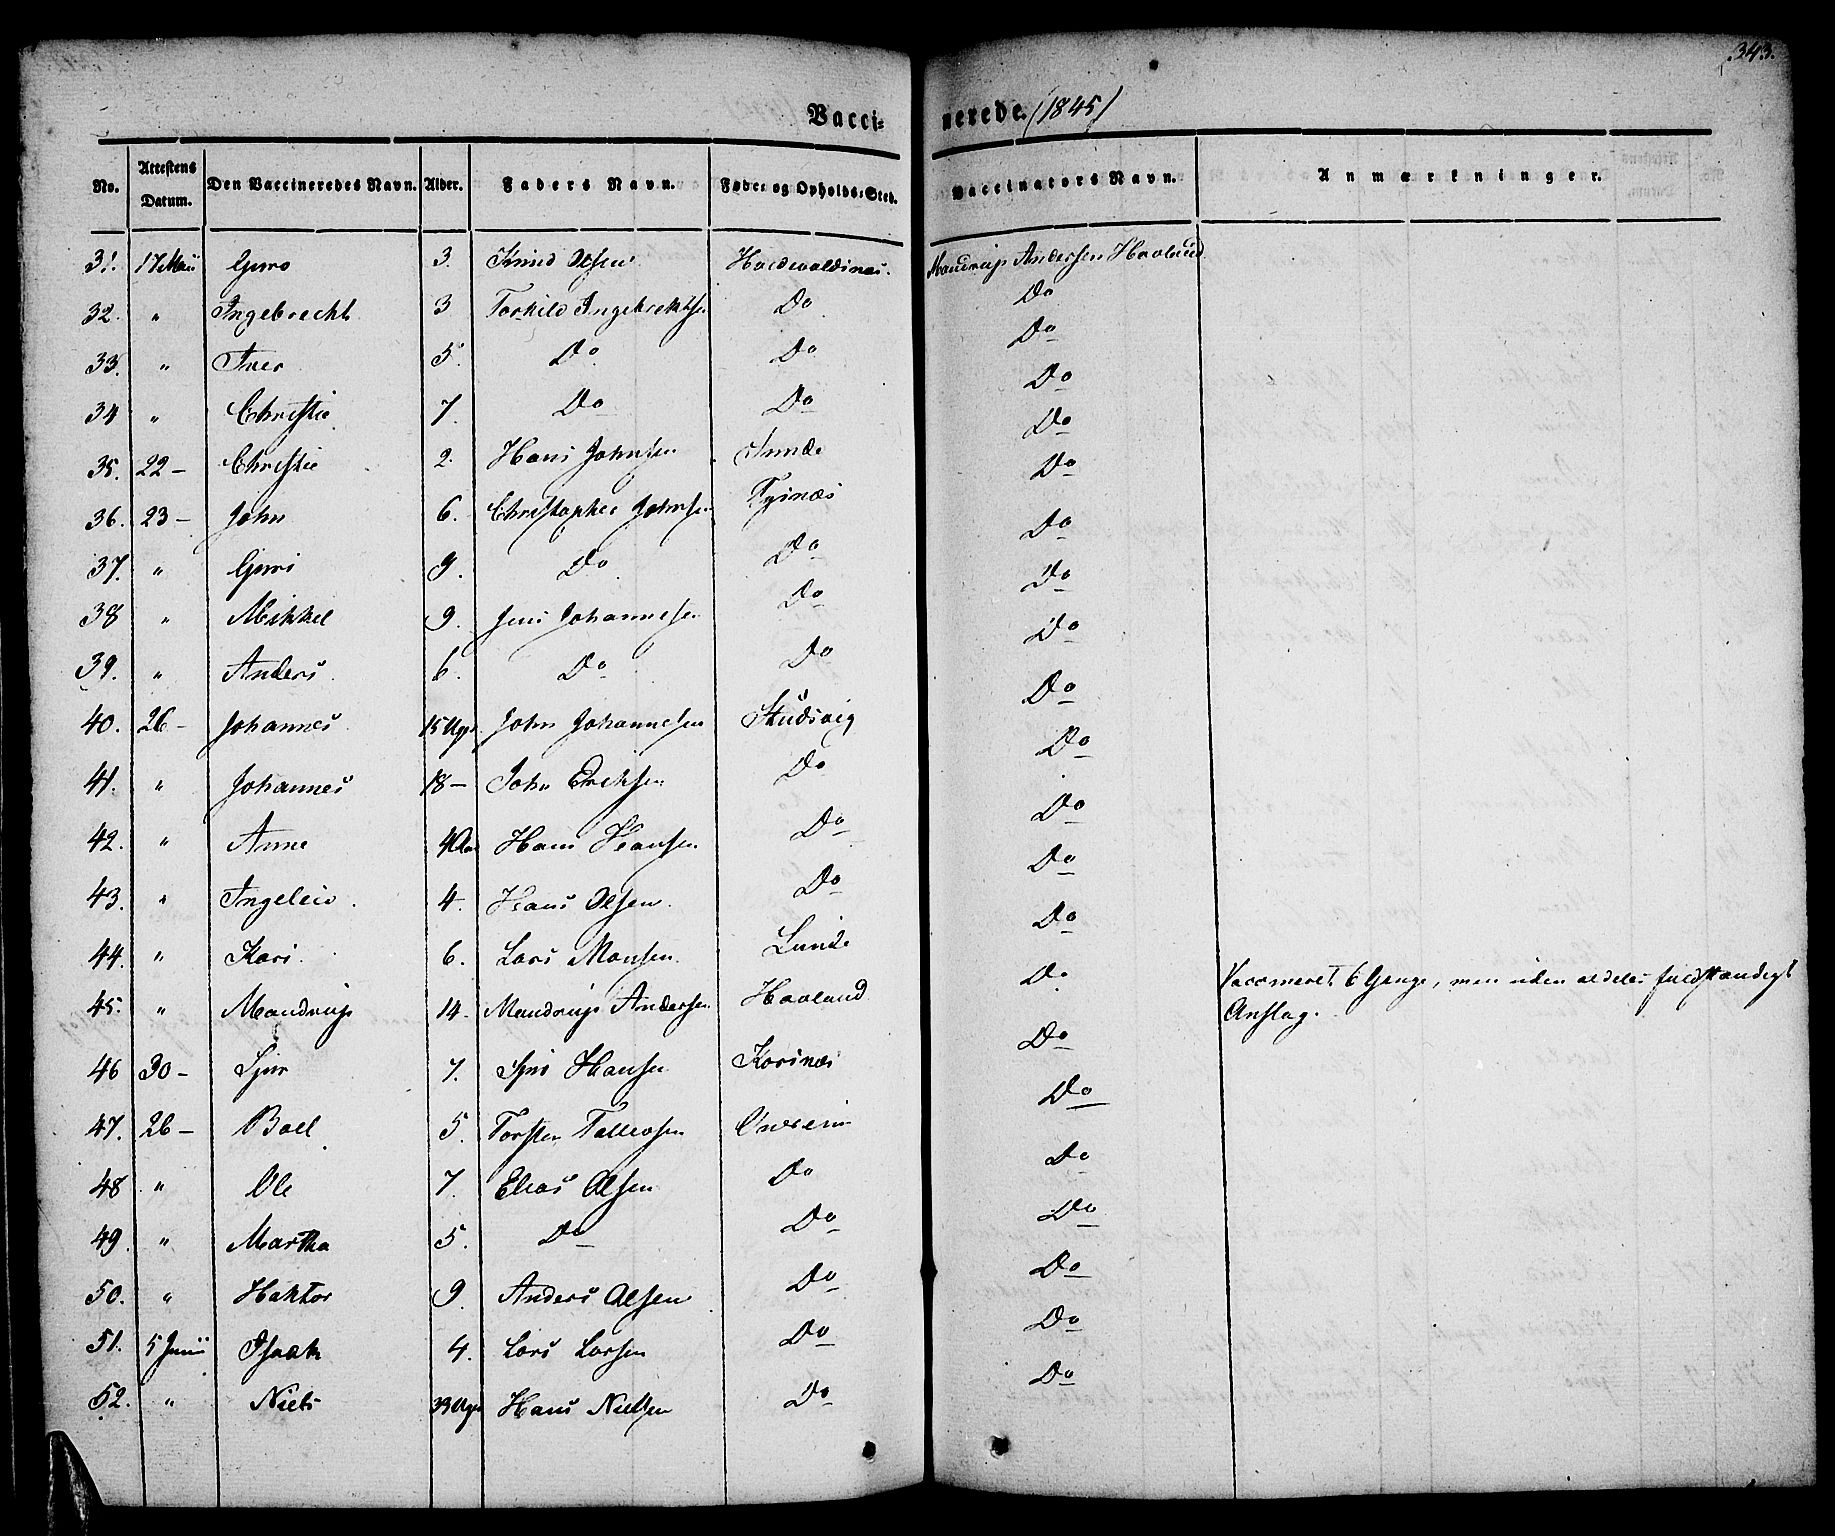 343.
Vaccinerede (1845)
No. Attestens Datum. Den Vaccineredes Navn. Alder. Faders Navn. Føde- og Opholds-Sted. Vaccinators Navn. Anmærkninger.
31. 17 Maii Guro 3. Knud Olsen Mandrup Andersen Haaland
32. " Ingebrecht 3 Torkild Ingebrektsen Do Do
33. " Iver 5. Do Do Do
34 " Christie 7. Do Do Do
35. 22 – Christie 2. Hans Johnsen Sunde Do
36. 23 – John 6. Christopher Johnsen Tysnæs Do
37. " Guri 9. Do Do Do
38 " Mikkel 9. Jens Johannesen Do Do
39. " Anders 6. Do Do Do
40. 26 – Johannes 15 Uger John Johannesen Skudsvig Do
41. " Johannes 18 – John Eriksen Do Do
42. " Anne 4 Aar Hans Hansen Do Do
43. " Ingeleiv 4. Hans Olsen Do Do
44. " Kari 6. Lars Monsen Lunde Do
45. " Mandrup 14. Mandrup Andersen Haaland Do Vaccineret 6 Gange, men uden aldeles fuldstændigt
Anslag.
46 30 – Sjur 7. Sjur Hansen Korsnæs Do
47. 26 – Boel 5. Torsten Tollevsen Do
48 " Ole 7. Elias Olsen Do Do
49. " Martha 5. Do Do Do
50. " Haktor 9. Anders Olsen Do Do
51. 5 Junii Isaak 4. Lars Larsen Do Do
52. " Niels 39 Uger Hans Nielsen Do Do